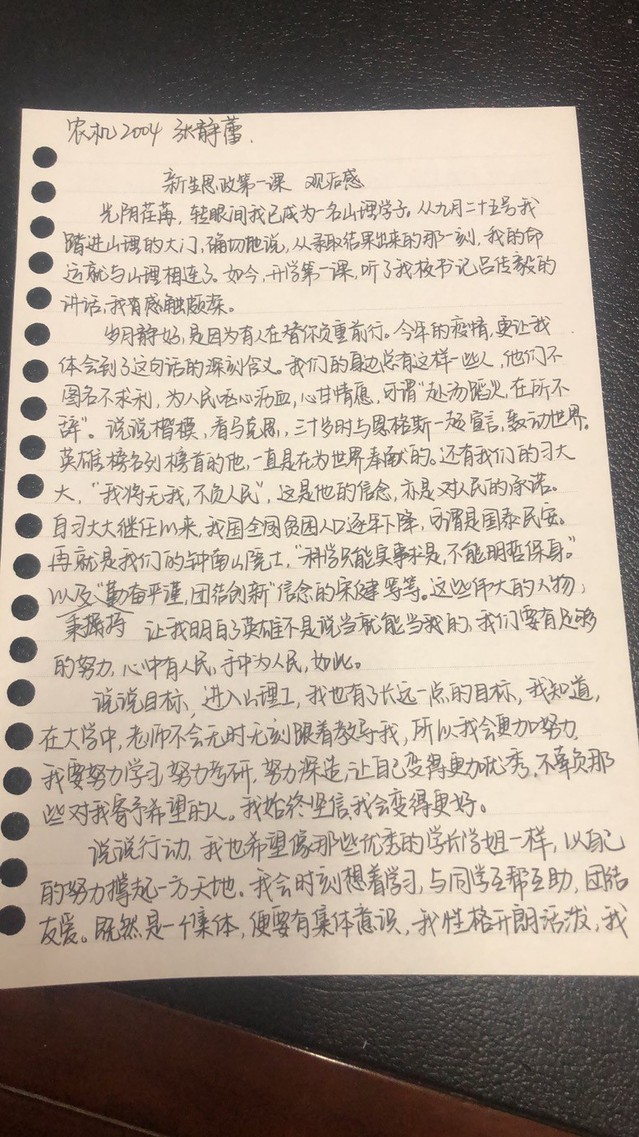 农机2004 张静蕾.
新生思政第一课 观后感
光阴荏苒，转眼间我已成为一名山理学子。从九月二十五号我
踏进山理的大门，确切地说，从录取结果出来的那一刻，我的命
运就与山理相连了。如今，开学第一课，听了我校书记吕传毅的
讲话，我有感触颇深。
岁月静好，是因为有人在替你负重前行。今年的疫情，更让我
体会到了这句话的深刻含义。我们的身边总有这样一些人，他们不
图名不求利，为人民呕心沥血，心甘情愿，可谓“赴汤蹈火，在所不
辞”。说说楷模，看马克思，三十岁时与恩格斯一起宣言，轰动世界。
英雄榜名列榜首的他，一直是在为世界奉献的。还有我们的习大
大，“我将无我，不负人民”，这是他的信念，亦是对人民的承诺。
自习大大继任以来，我国全国贫困人口逐年下降，可谓是国泰民安。
再就是我们的钟南山院士，“科学只能实事求是，不能明哲保身。”
以及“勤奋严谨，团结创新”信念的宋健等等。这些伟大的人物，
秉搞持 让我明白了英雄不是说当就能当我的，我们要有足够
的努力，心中有人民，手中为人民，如此。
说说目标，进入山理工，我也有了长远一点的目标，我知道，
在大学中，老师不会无时无刻跟着教导我，所以我会更加努力，
我要努力学习，努力考研，努力深造，让自己变得更加优秀，不辜负那
些对我寄予希望的人。我始终坚信，我会变得更好。
说说行动，我也希望像那些优秀的学长学姐一样，以自己
的努力撑起一方天地。我会时刻想着学习，与同学互帮互助，团结
友爱。既然是一个集体，便要有集体意识，我性格开朗活泼，我